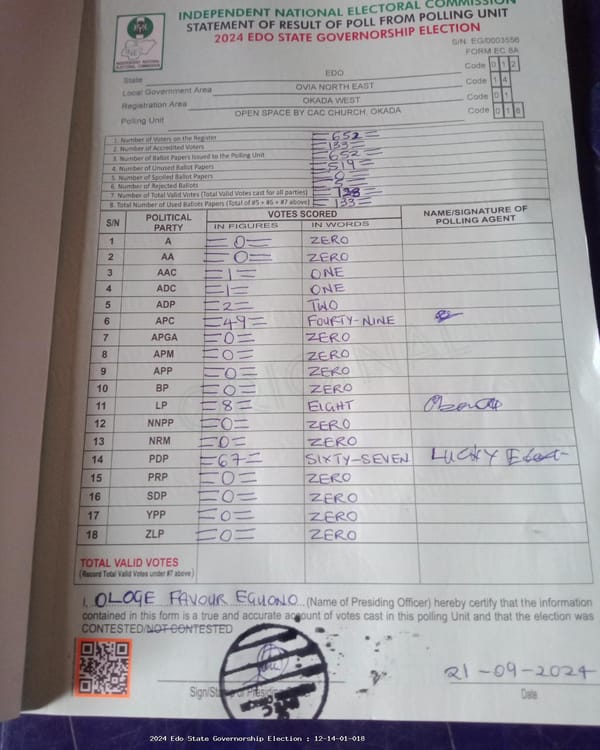 INDEPENDENT NATIONAL ELECTORAL COMMISSION
STATEMENT OF RESULT OF POLL FROM POLLING UNIT
2024 EDO STATE GOVERNORSHIP ELECTION
INDEPENDENT NATIONAL ELECTORAL COMMISSION
S/N: EG/0003556
FORM EC 8A
State EDO Code 012
Local Government Area OVIA NORTH EAST Code 14
Registration Area OKADA WEST Code 01
Polling Unit OPEN SPACE BY CAC CHURCH, OKADA Code 018
1. Number of Voters on the Register =652=
2. Number of Accredited Voters =133=
3. Number of Ballot Papers Issued to the Polling Unit =652=
4. Number of Unused Ballot Papers =519=
5. Number of Spoiled Ballot Papers =0=
6. Number of Rejected Ballots
7. Number of Total Valid Votes (Total Valid Votes cast for all parties)
8. Total Number of Used Ballots Papers (Total of #5 + #6 + #7 above) =133=
S/N POLITICAL PARTY VOTES SCORED NAME/SIGNATURE OF POLLING AGENT
IN FIGURES IN WORDS
1 A =0= ZERO
2 AA =0= ZERO
3 AAC =1= ONE
4 ADC =1= ONE
5 ADP =2= TWO
6 APC =49= FOURTY-NINE
7 APGA =0= ZERO
8 APM =0= ZERO
9 APP =0= ZERO
10 BP =0= ZERO
11 LP =8= EIGHT
12 NNPP =0= ZERO
13 NRM =0= ZERO
14 PDP =67= SIXTY-SEVEN LUCKY
15 PRP =0= ZERO
16 SDP =0= ZERO
17 YPP =0= ZERO
18 ZLP =0= ZERO
TOTAL VALID VOTES
(Record Total Valid Votes under #7 above)
I, OLOGE FAVOUR EGUONO (Name of Presiding Officer) hereby certify that the information
contained in this form is a true and accurate account of votes cast in this polling Unit and that the election was
CONTESTED/NOT CONTESTED
21-09-2024
Date
2024 Edo State Governorship Election : 12-14-01-018